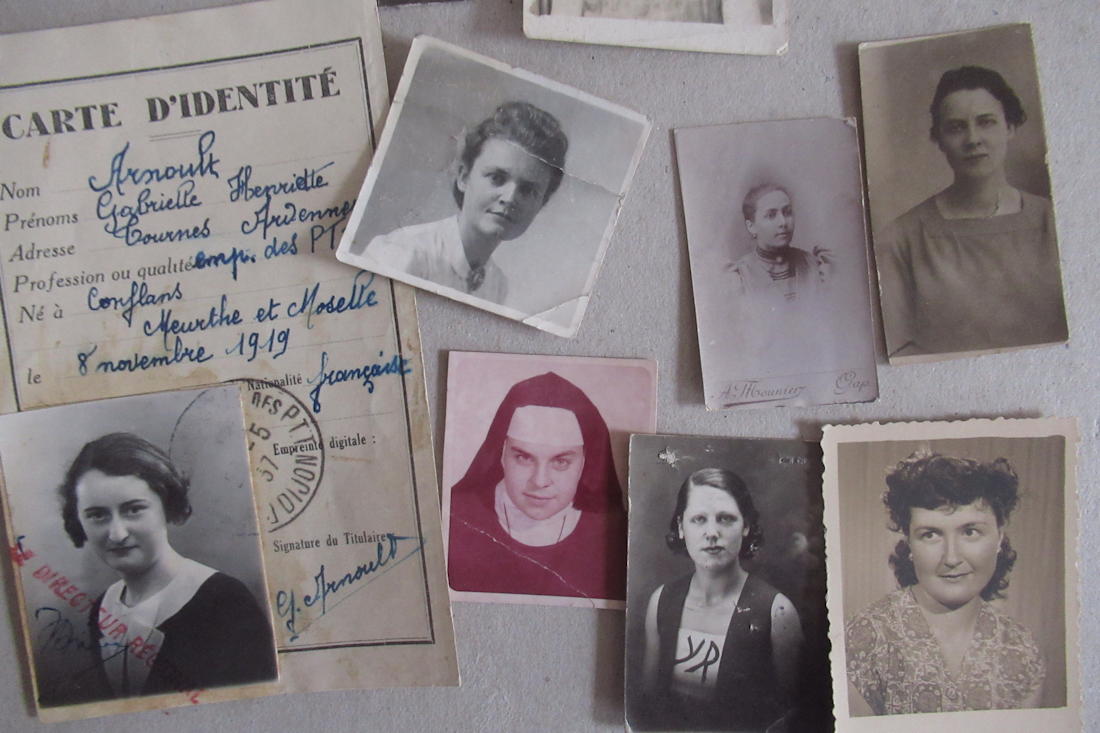 CARTE D'IDENTITÉ
Nom Arnoult
Prénoms Gabrielle Henriette
Adresse Tournes Ardennes
Profession ou qualité emp. des PTT
Né à Conflans
Meurthe et Moselle
le 8 novembre 1919
Nationalité française
PTT
Empreinte digitale :
37
Signature du Titulaire
G. Arnoult
DIRECTEUR
A. Mounier Gap
YR